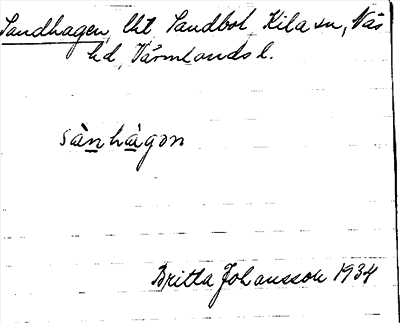 Sandhagen, lht, Sandbol, Kila sn, Näs
hd, Värmlands l.
sàn̲hà̲gɔn
Britta Johansson 1934